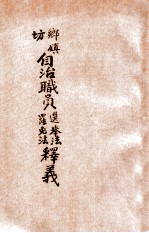 鄉鎮坊自治職員選舉法罷免法釋義